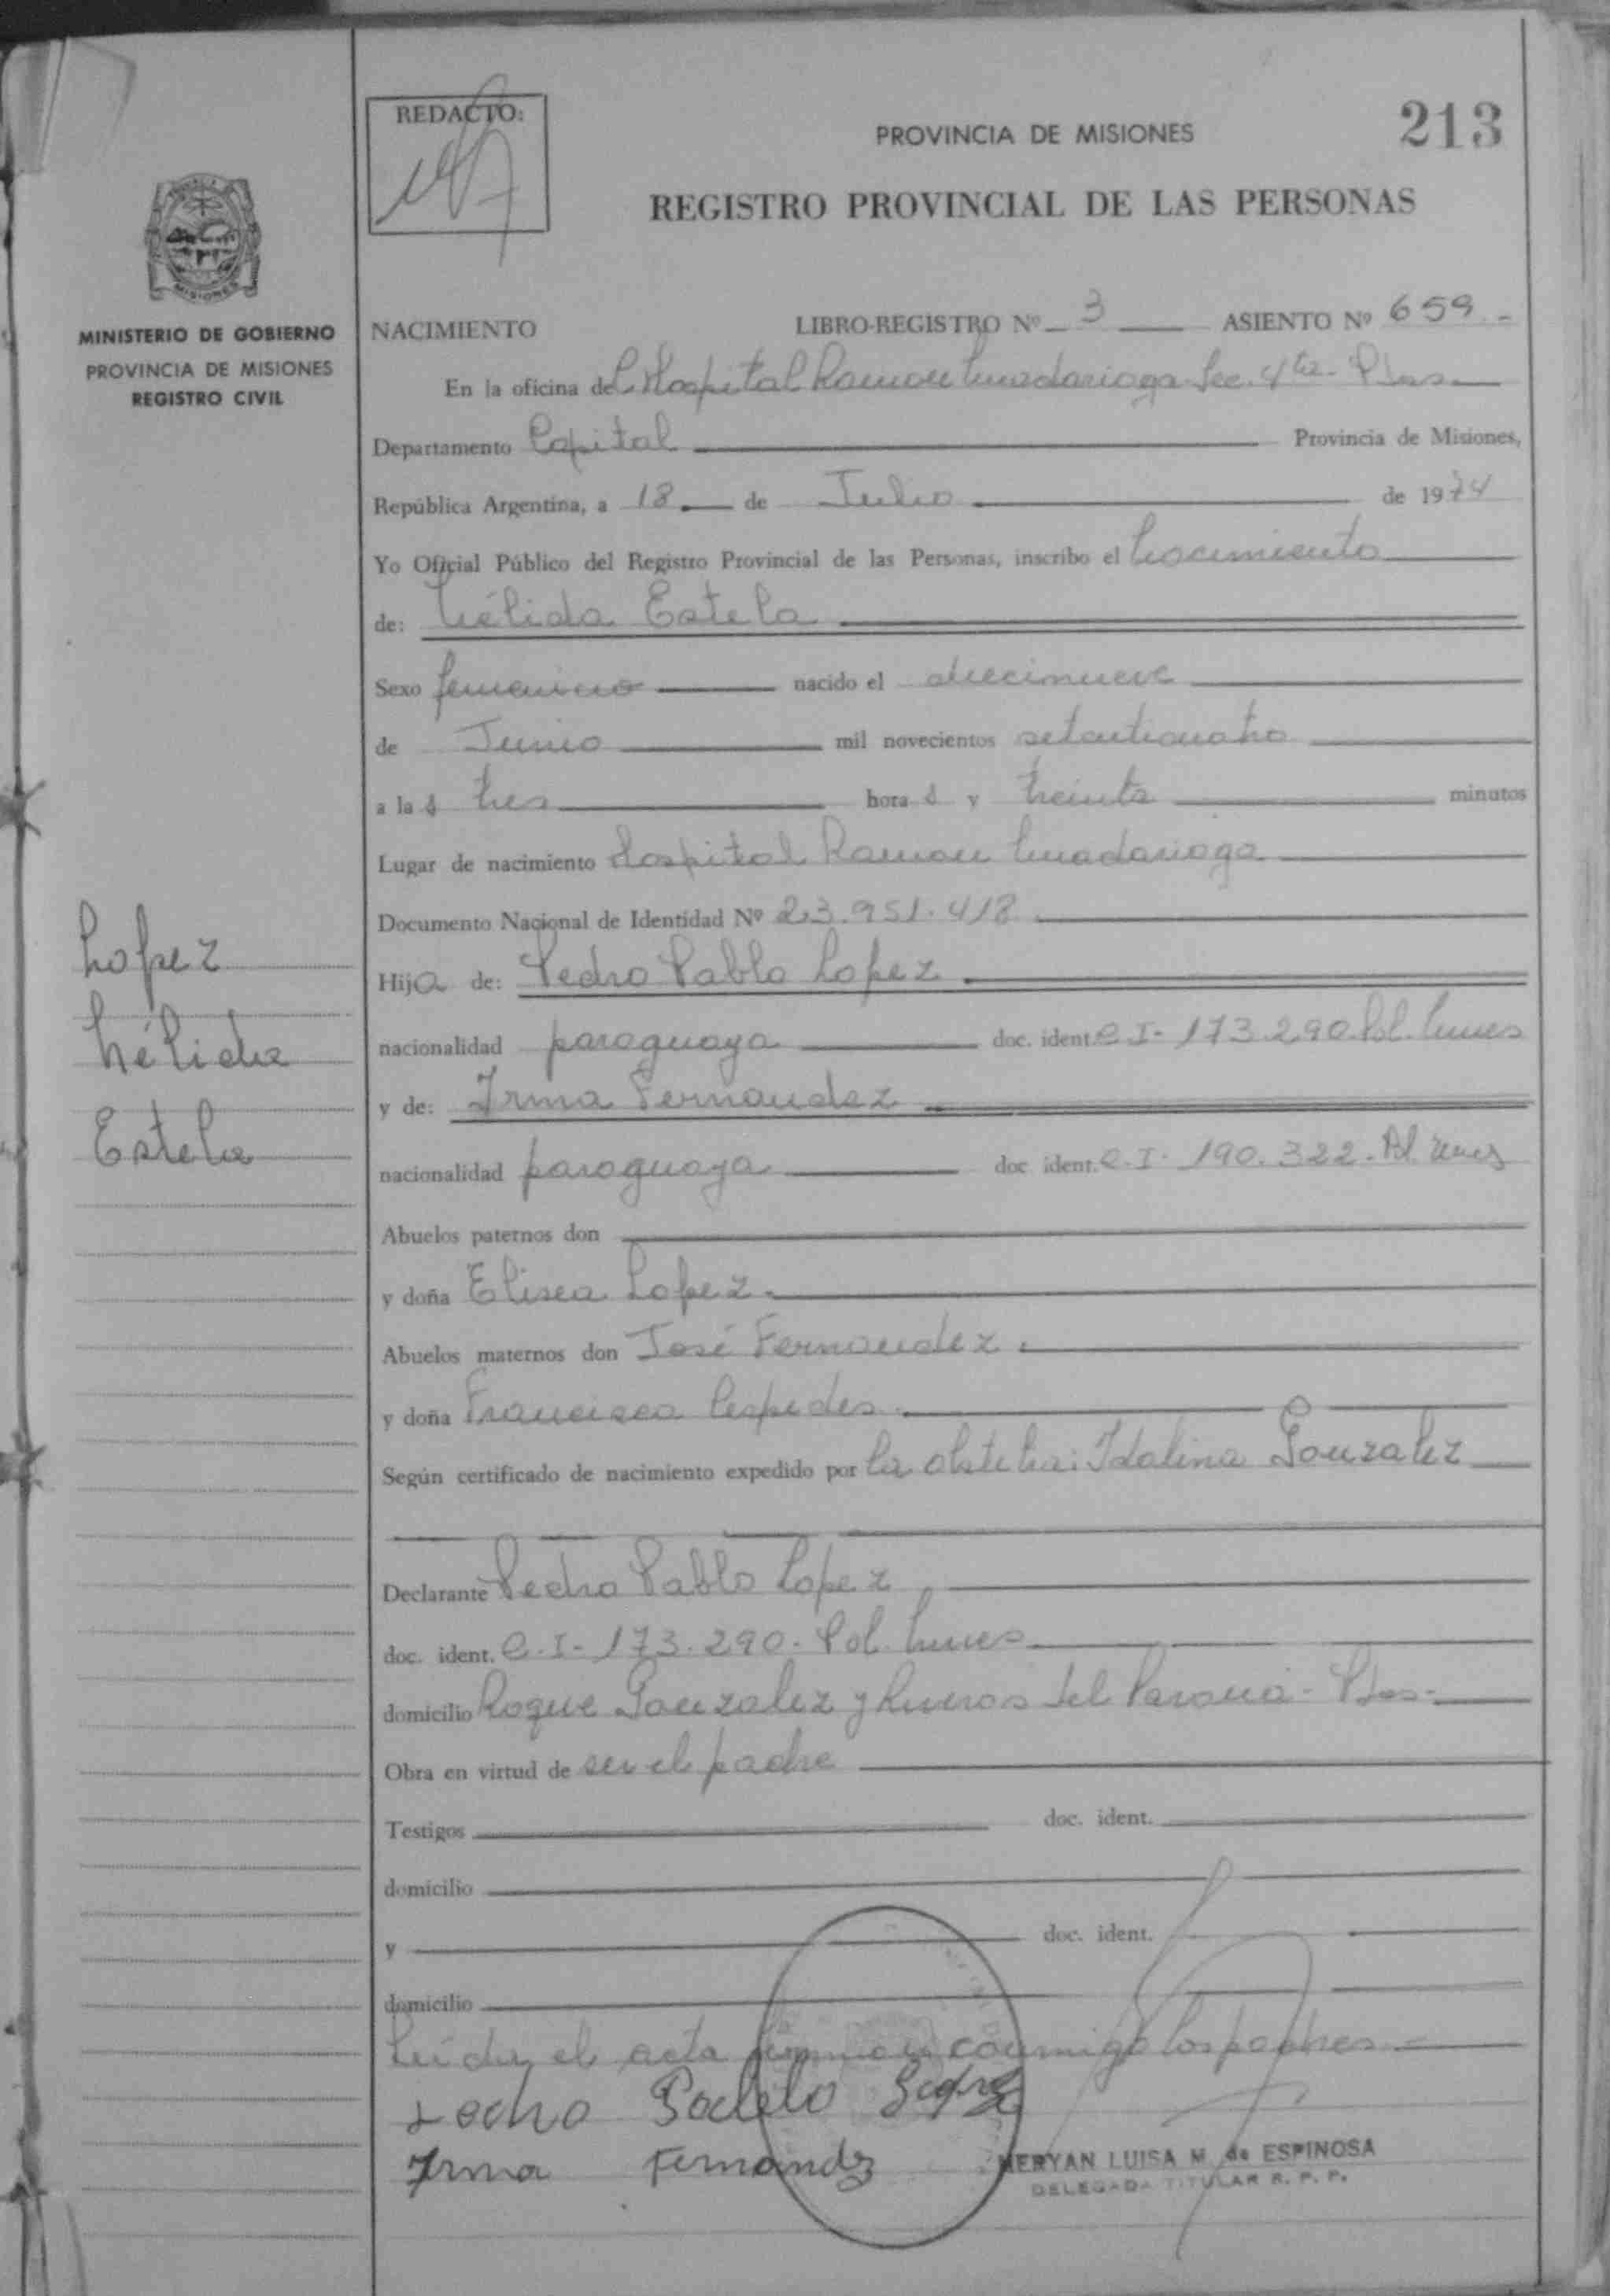 REDACTO:
PROVINCIA DE MISIONES
213
REGISTRO PROVINCIAL DE LAS PERSONAS
MISIONES
MINISTERIO DE GOBIERNO
PROVINCIA DE MISIONES
REGISTRO CIVIL
NACIMIENTO LIBRO-REGISTRO Nº 3 ASIENTO Nº 659.-
En la oficina del Hospital Ramon Madariaga Sec. 4ta- Pdas
Departamento Capital Provincia de Misiones,
República Argentina, a 18 de Julio de 1974
Yo Oficial Público del Registro Provincial de las Personas, inscribo el nacimiento
de: Nélida Estela
Sexo femenino nacido el diecinueve
de Junio mil novecientos setenticuatro
a la s tres hora s y treinta minutos
Lugar de nacimiento Hospital Ramon Madariaga
Documento Nacional de Identidad Nº 23.951.418
Hija de: Pedro Pablo Lopez
nacionalidad paraguaya doc. ident. C.I- 173.290. Pol. Mnes
y de: Irma Fernandez
nacionalidad paraguaya doc. ident. C.I- 190.322. Pol. Mnes
Abuelos paternos don
y doña Elisea Lopez.
Abuelos maternos don José Fernandez.
y doña Francisca Cespedes.
Según certificado de nacimiento expedido por la obstetra: Idalina Gonzalez
Declarante Pedro Pablo Lopez
doc. ident. C.I- 173.290. Pol. Mnes
domicilio Roque Gonzalez y Riveras del Paraná- Pdas-
Obra en virtud de ser el padre
Testigos doc. ident.
domicilio
y doc. ident.
domicilio
Leída el acta firman conmigo los padres =
Pedro Pablo Lopez
Irma Fernandz
MERYAN LUISA M de ESPINOSA
DELEGADA TITULAR R. P. P.
Lopez
Nélida
Estela